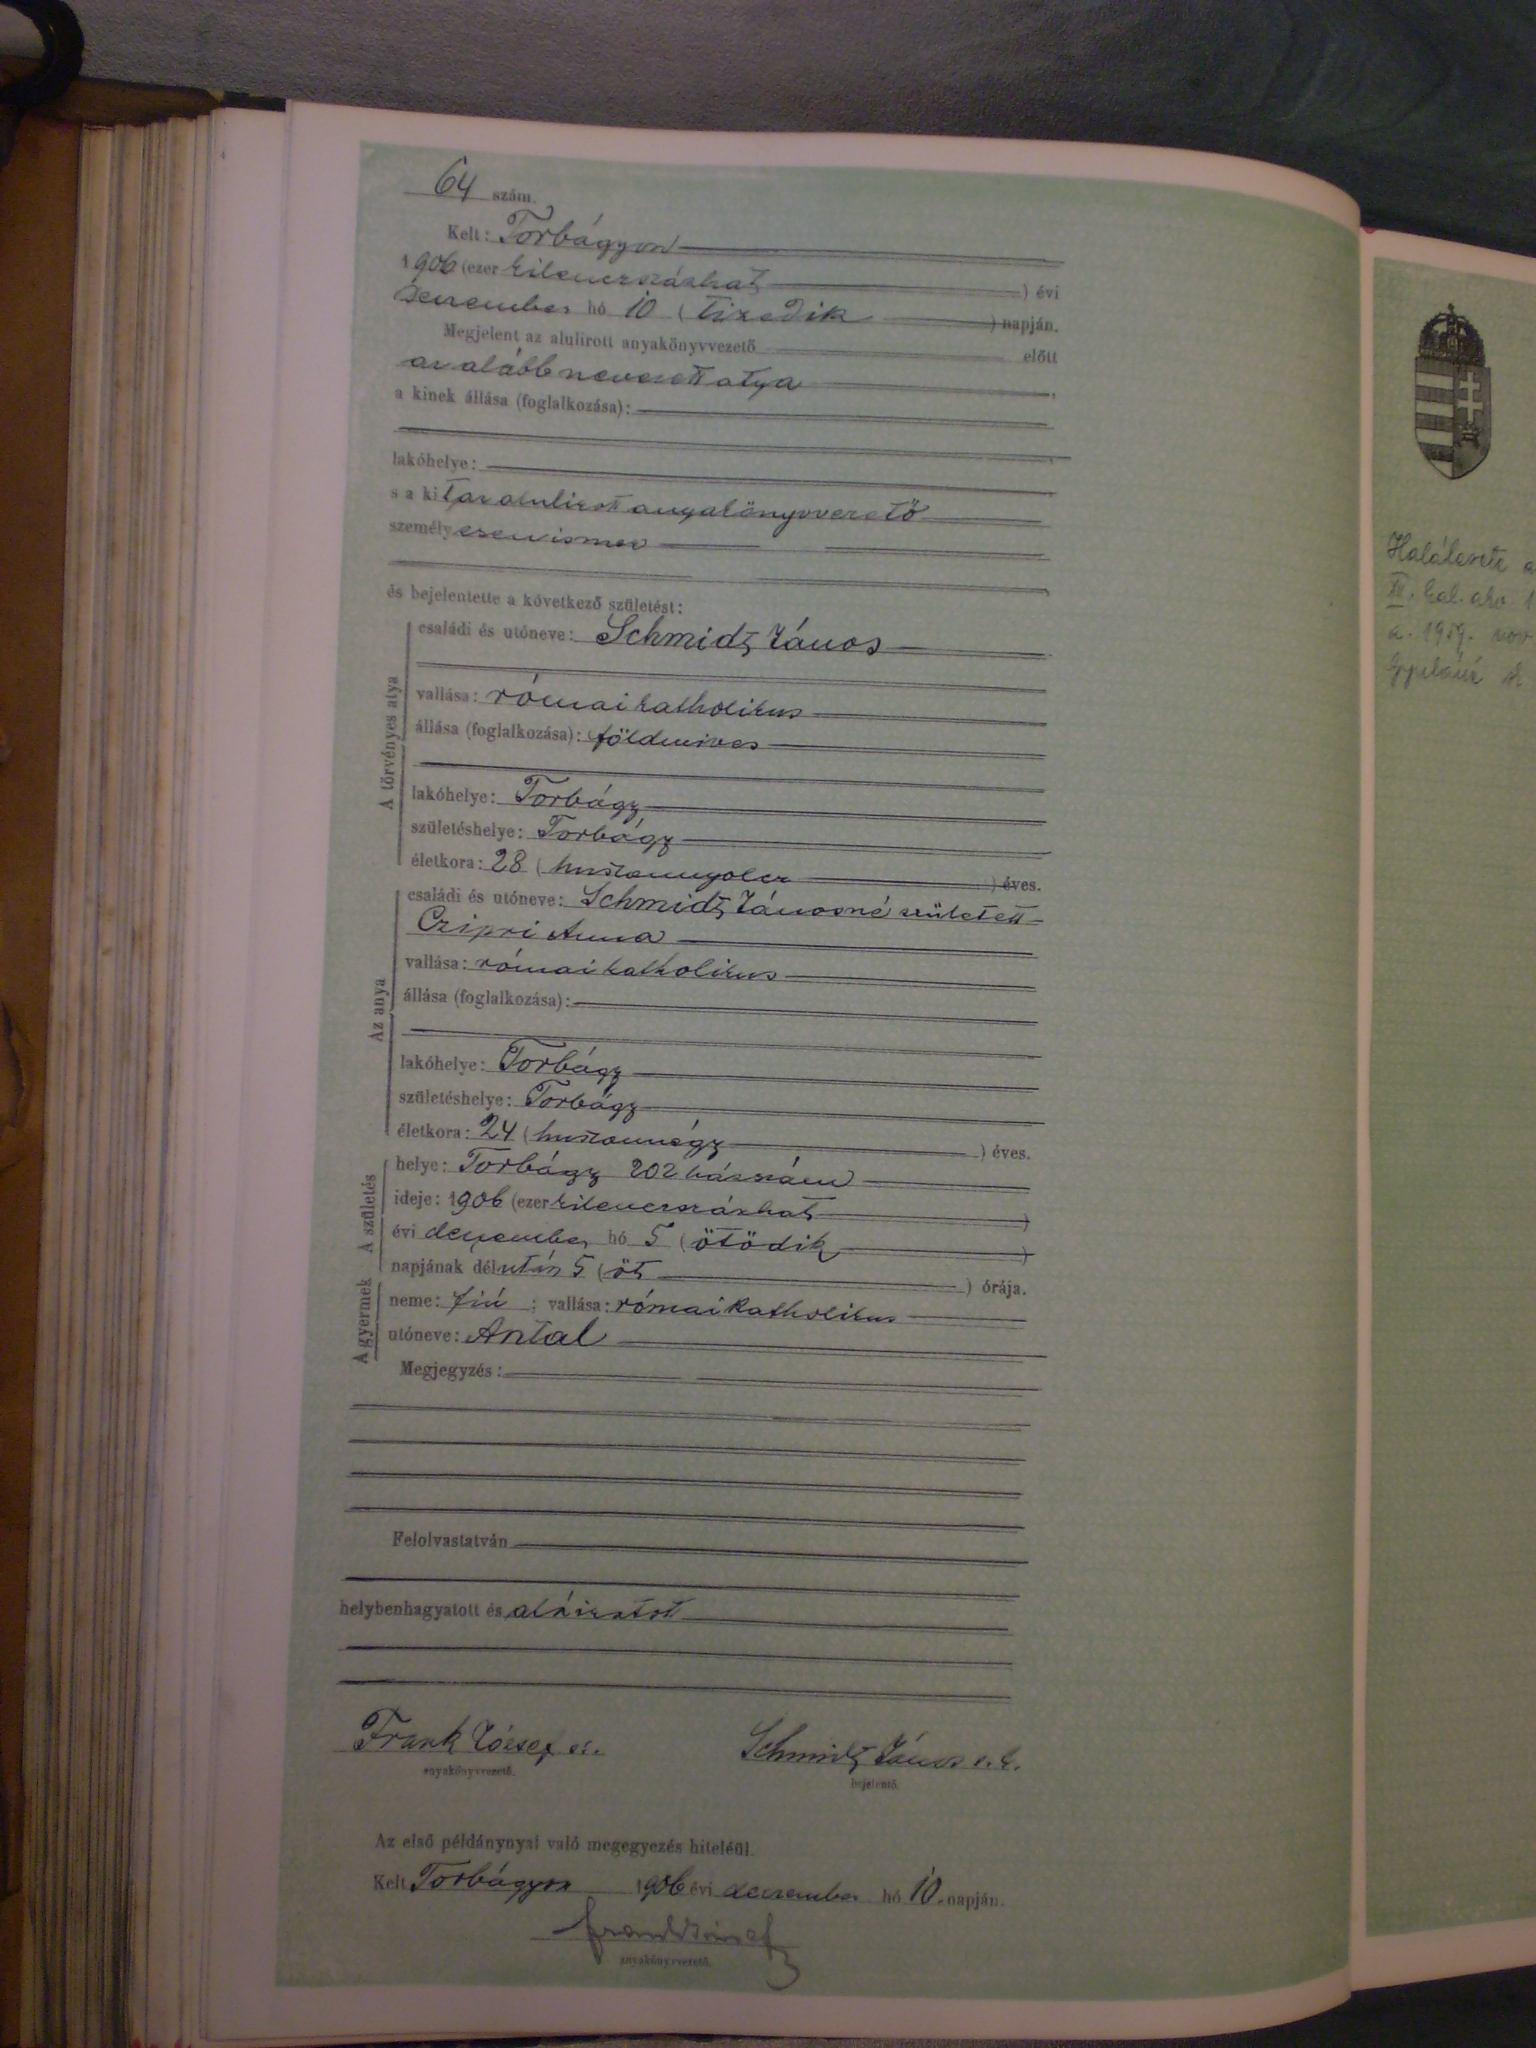 64 szám.
Kelt: Torbágyon
1906 (ezer kilenczszázhat ) évi
deczember hó 10 ( tizedik ) napján.
Megjelent az alulirott anyakönyvvezető előtt
az alább nevezett atya ,
a kinek állása (foglalkozása):
lakóhelye:
s a kit az alulirott anyakönyvvezető
személyesen ismer
és bejelentette a következő születést:
A törvényes atya
családi és utóneve: Schmidt János
vallása: római katholikus
állása (foglalkozása): földmives
lakóhelye: Torbágy
születéshelye: Torbágy
életkora: 28 ( huszonnyolcz ) éves.
Az anya
családi és utóneve: Schmidt Jánosné született
Czipri Anna
vallása: római katholikus
állása (foglalkozása):
lakóhelye: Torbágy
születéshelye: Torbágy
életkora: 24 ( huszonnégy ) éves.
A születés
helye: Torbágy 202 házszám
ideje: 1906 (ezer kilenczszázhat )
évi deczember hó 5 ( ötödik )
napjának délután 5 ( öt ) órája.
A gyermek
neme: fiú ; vallása: római katholikus
utóneve: Antal
Megjegyzés:
Felolvastatván
helybenhagyatott és aláiratott
Frank József
anyakönyvvezető.
Schmidt János s. k.
bejelentő.
Az első példánynyal való megegyezés hiteléül.
Kelt Torbágyon 1906 évi deczember hó 10. napján.
Frank József
anyakönyvvezető.
Halálesete a
XII. ker. akv. 1
a. 1959. nov